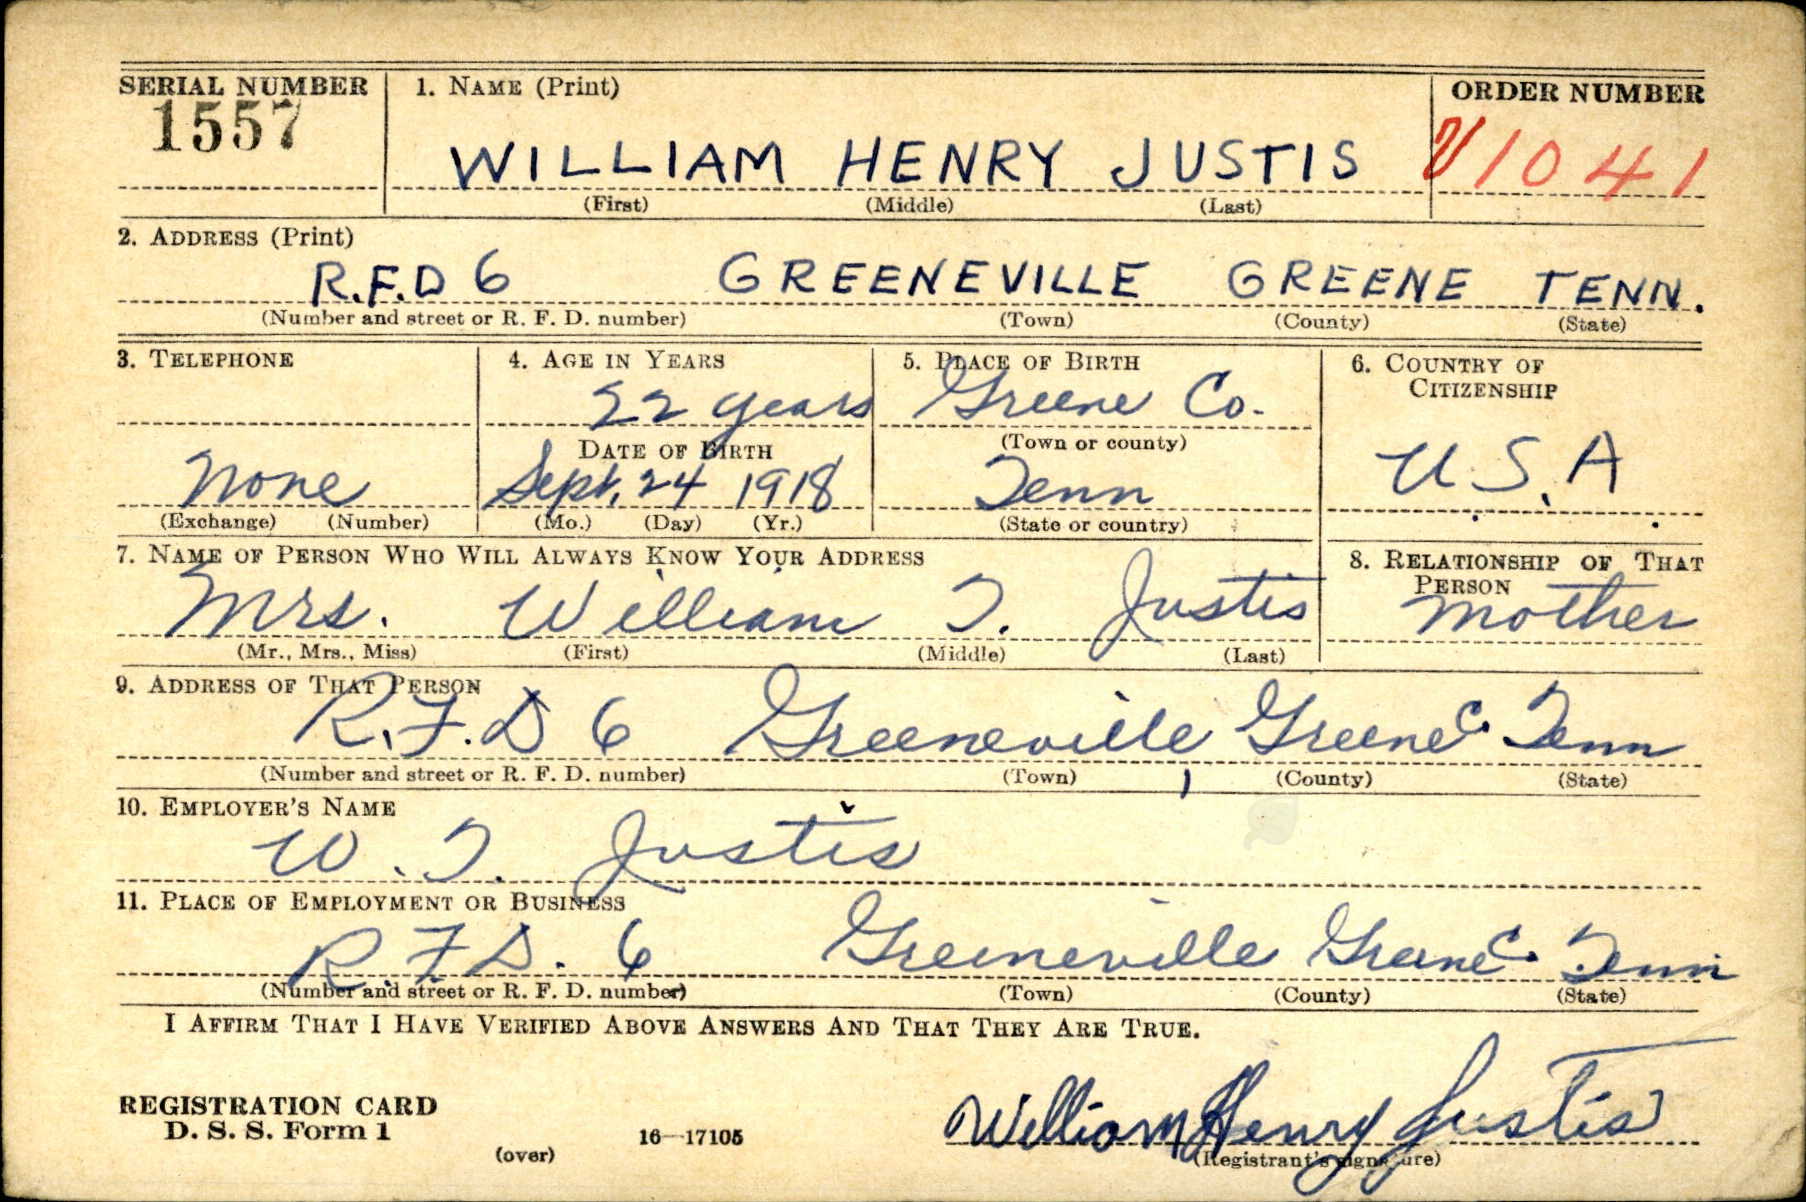 SERIAL NUMBER 1. NAME (Print) ORDER NUMBER
1557 WILLIAM HENRY JUSTIS V1041
(First) (Middle) (Last)
2. ADDRESS (Print)
R.F.D 6 GREENEVILLE GREENE TENN.
(Number and street or R. F. D. number) (Town) (County) (State)
3. TELEPHONE 4. AGE IN YEARS 5. PLACE OF BIRTH 6. COUNTRY OF
CITIZENSHIP
22 years Greene Co.
DATE OF BIRTH (Town or county)
None Sept. 24 1918 Tenn U.S.A
(Exchange) (Number) (Mo.) (Day) (Yr.) (State or country)
7. NAME OF PERSON WHO WILL ALWAYS KNOW YOUR ADDRESS 8. RELATIONSHIP OF THAT
PERSON
Mrs. William T. Justis Mother
(Mr., Mrs., Miss) (First) (Middle) (Last)
9. ADDRESS OF THAT PERSON
R.F.D 6 Greeneville, Greene C. Tenn
(Number and street or R. F. D. number) (Town) (County) (State)
10. EMPLOYER'S NAME
W. T. Justis
11. PLACE OF EMPLOYMENT OR BUSINESS
R.F.D. 6 Greeneville Greene C. Tenn
(Number and street or R. F. D. number) (Town) (County) (State)
I AFFIRM THAT I HAVE VERIFIED ABOVE ANSWERS AND THAT THEY ARE TRUE.
REGISTRATION CARD
D. S. S. Form 1 16—17105 William Henry Justis
(over) (Registrant's signature)